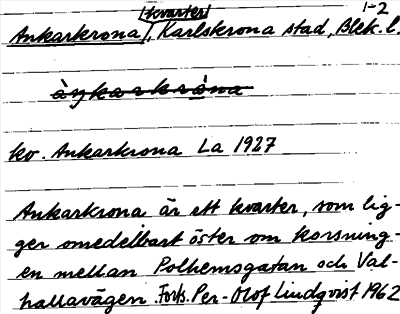 kvarter 1-2
Ankarkrona, Karlskrona stad, Blek. l.
àŋkarkråna
kv. Ankarkrona La 1927
Ankarkrona är ett kvarter, som lig-
ger omedelbart öster om korsning-
en mellan Polhemsgatan och Val-
hallavägen. Forts. Per-Olof Lindqvist 1962